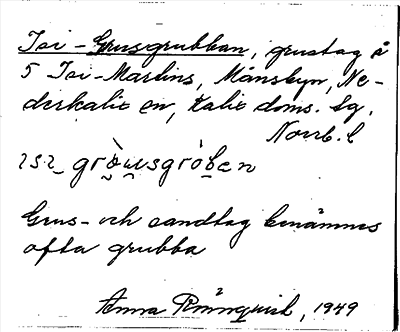 Isi-Grusgrubban, grustag å
5 Isi-Martins, Månsbyn, Ne-
derkalix sn, Kalix doms. sg.
Norrb. l
gròu̯sgròben
Grus- och sandtag benämnes
ofta grubba
Anna Rönnquist, 1949